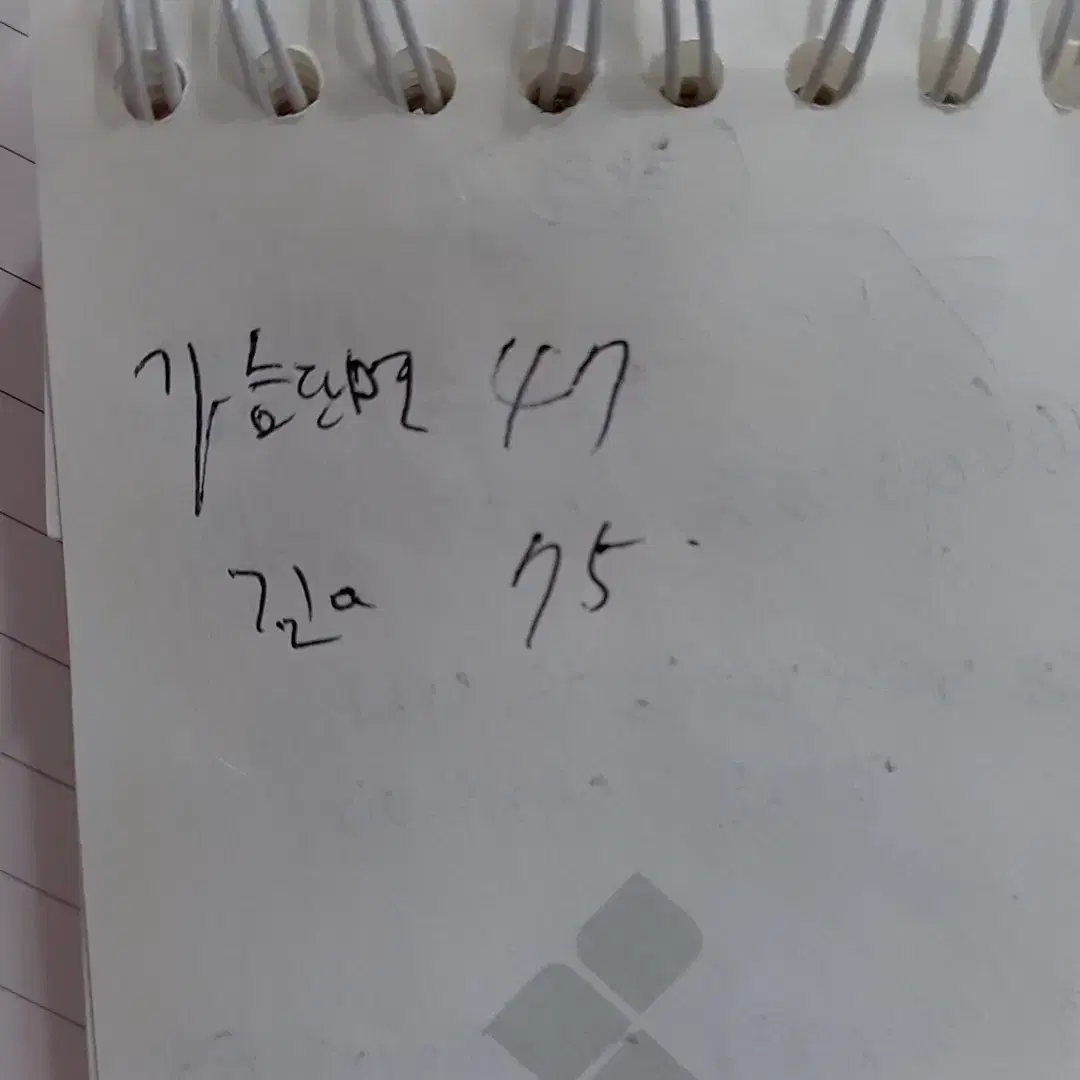 가슴단면 47
길이 75